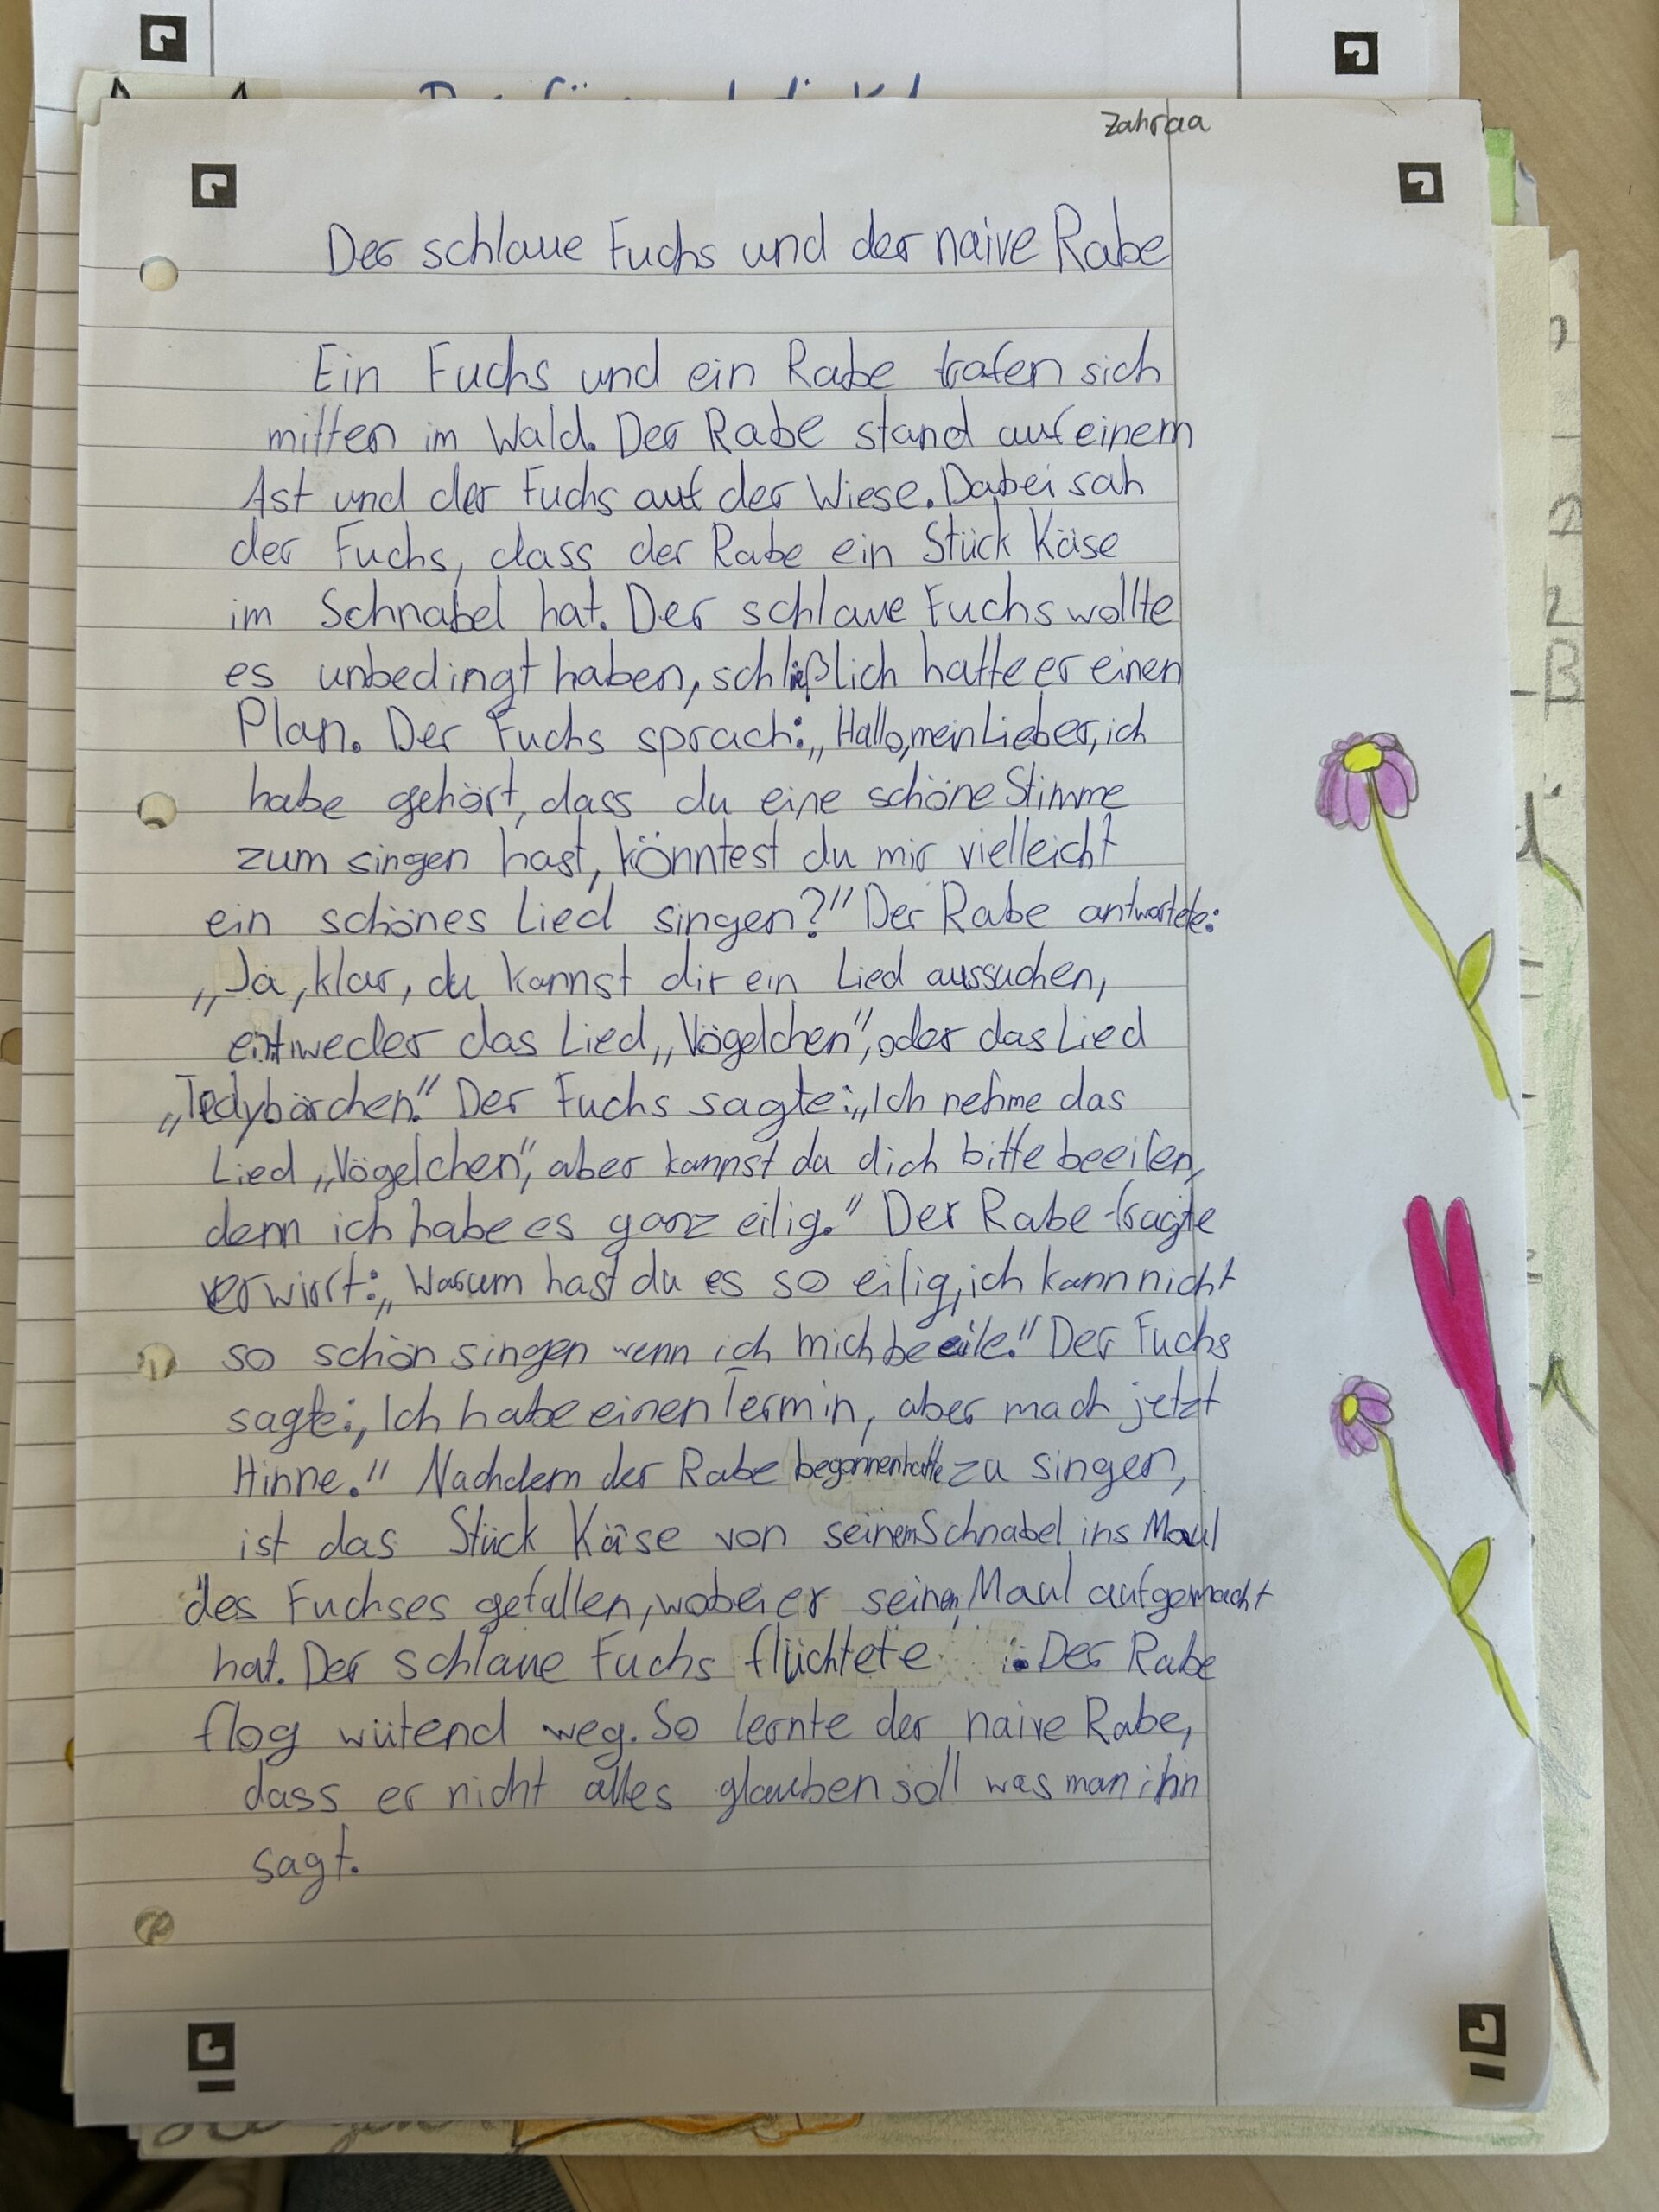 Zahraa
Der schlaue Fuchs und der naive Rabe
Ein Fuchs und ein Rabe trafen sich
mitten im Wald. Der Rabe stand auf einem
Ast und der Fuchs auf der Wiese. Dabei sah
der Fuchs, dass der Rabe ein Stück Käse
im Schnabel hat. Der schlaue Fuchs wollte
es unbedingt haben, schließlich hatte er einen
Plan. Der Fuchs sprach: „Hallo, mein Lieber, ich
habe gehört, dass du eine schöne Stimme
zum singen hast, könntest du mir vielleicht
ein schönes Lied singen?" Der Rabe antwortete:
„Ja, klar, du kannst dir ein Lied aussuchen,
entweder das Lied „Vögelchen", oder das Lied
„Tedybärchen." Der Fuchs sagte: „Ich nehme das
Lied „Vögelchen", aber kannst du dich bitte beeilen,
denn ich habe es ganz eilig." Der Rabe fragte
verwirrt: „Warum hast du es so eilig, ich kann nicht
so schön singen wenn ich mich beeile!" Der Fuchs
sagte: „Ich habe einen Termin, aber mach jetzt
Hinne!" Nachdem der Rabe begonnen hatte zu singen,
ist das Stück Käse von seinem Schnabel ins Maul
des Fuchses gefallen, wobei er seinen Maul aufgemacht
hat. Der schlaue Fuchs flüchtete. Der Rabe
flog wütend weg. So lernte der naive Rabe,
dass er nicht alles glauben soll was man ihn
sagt.